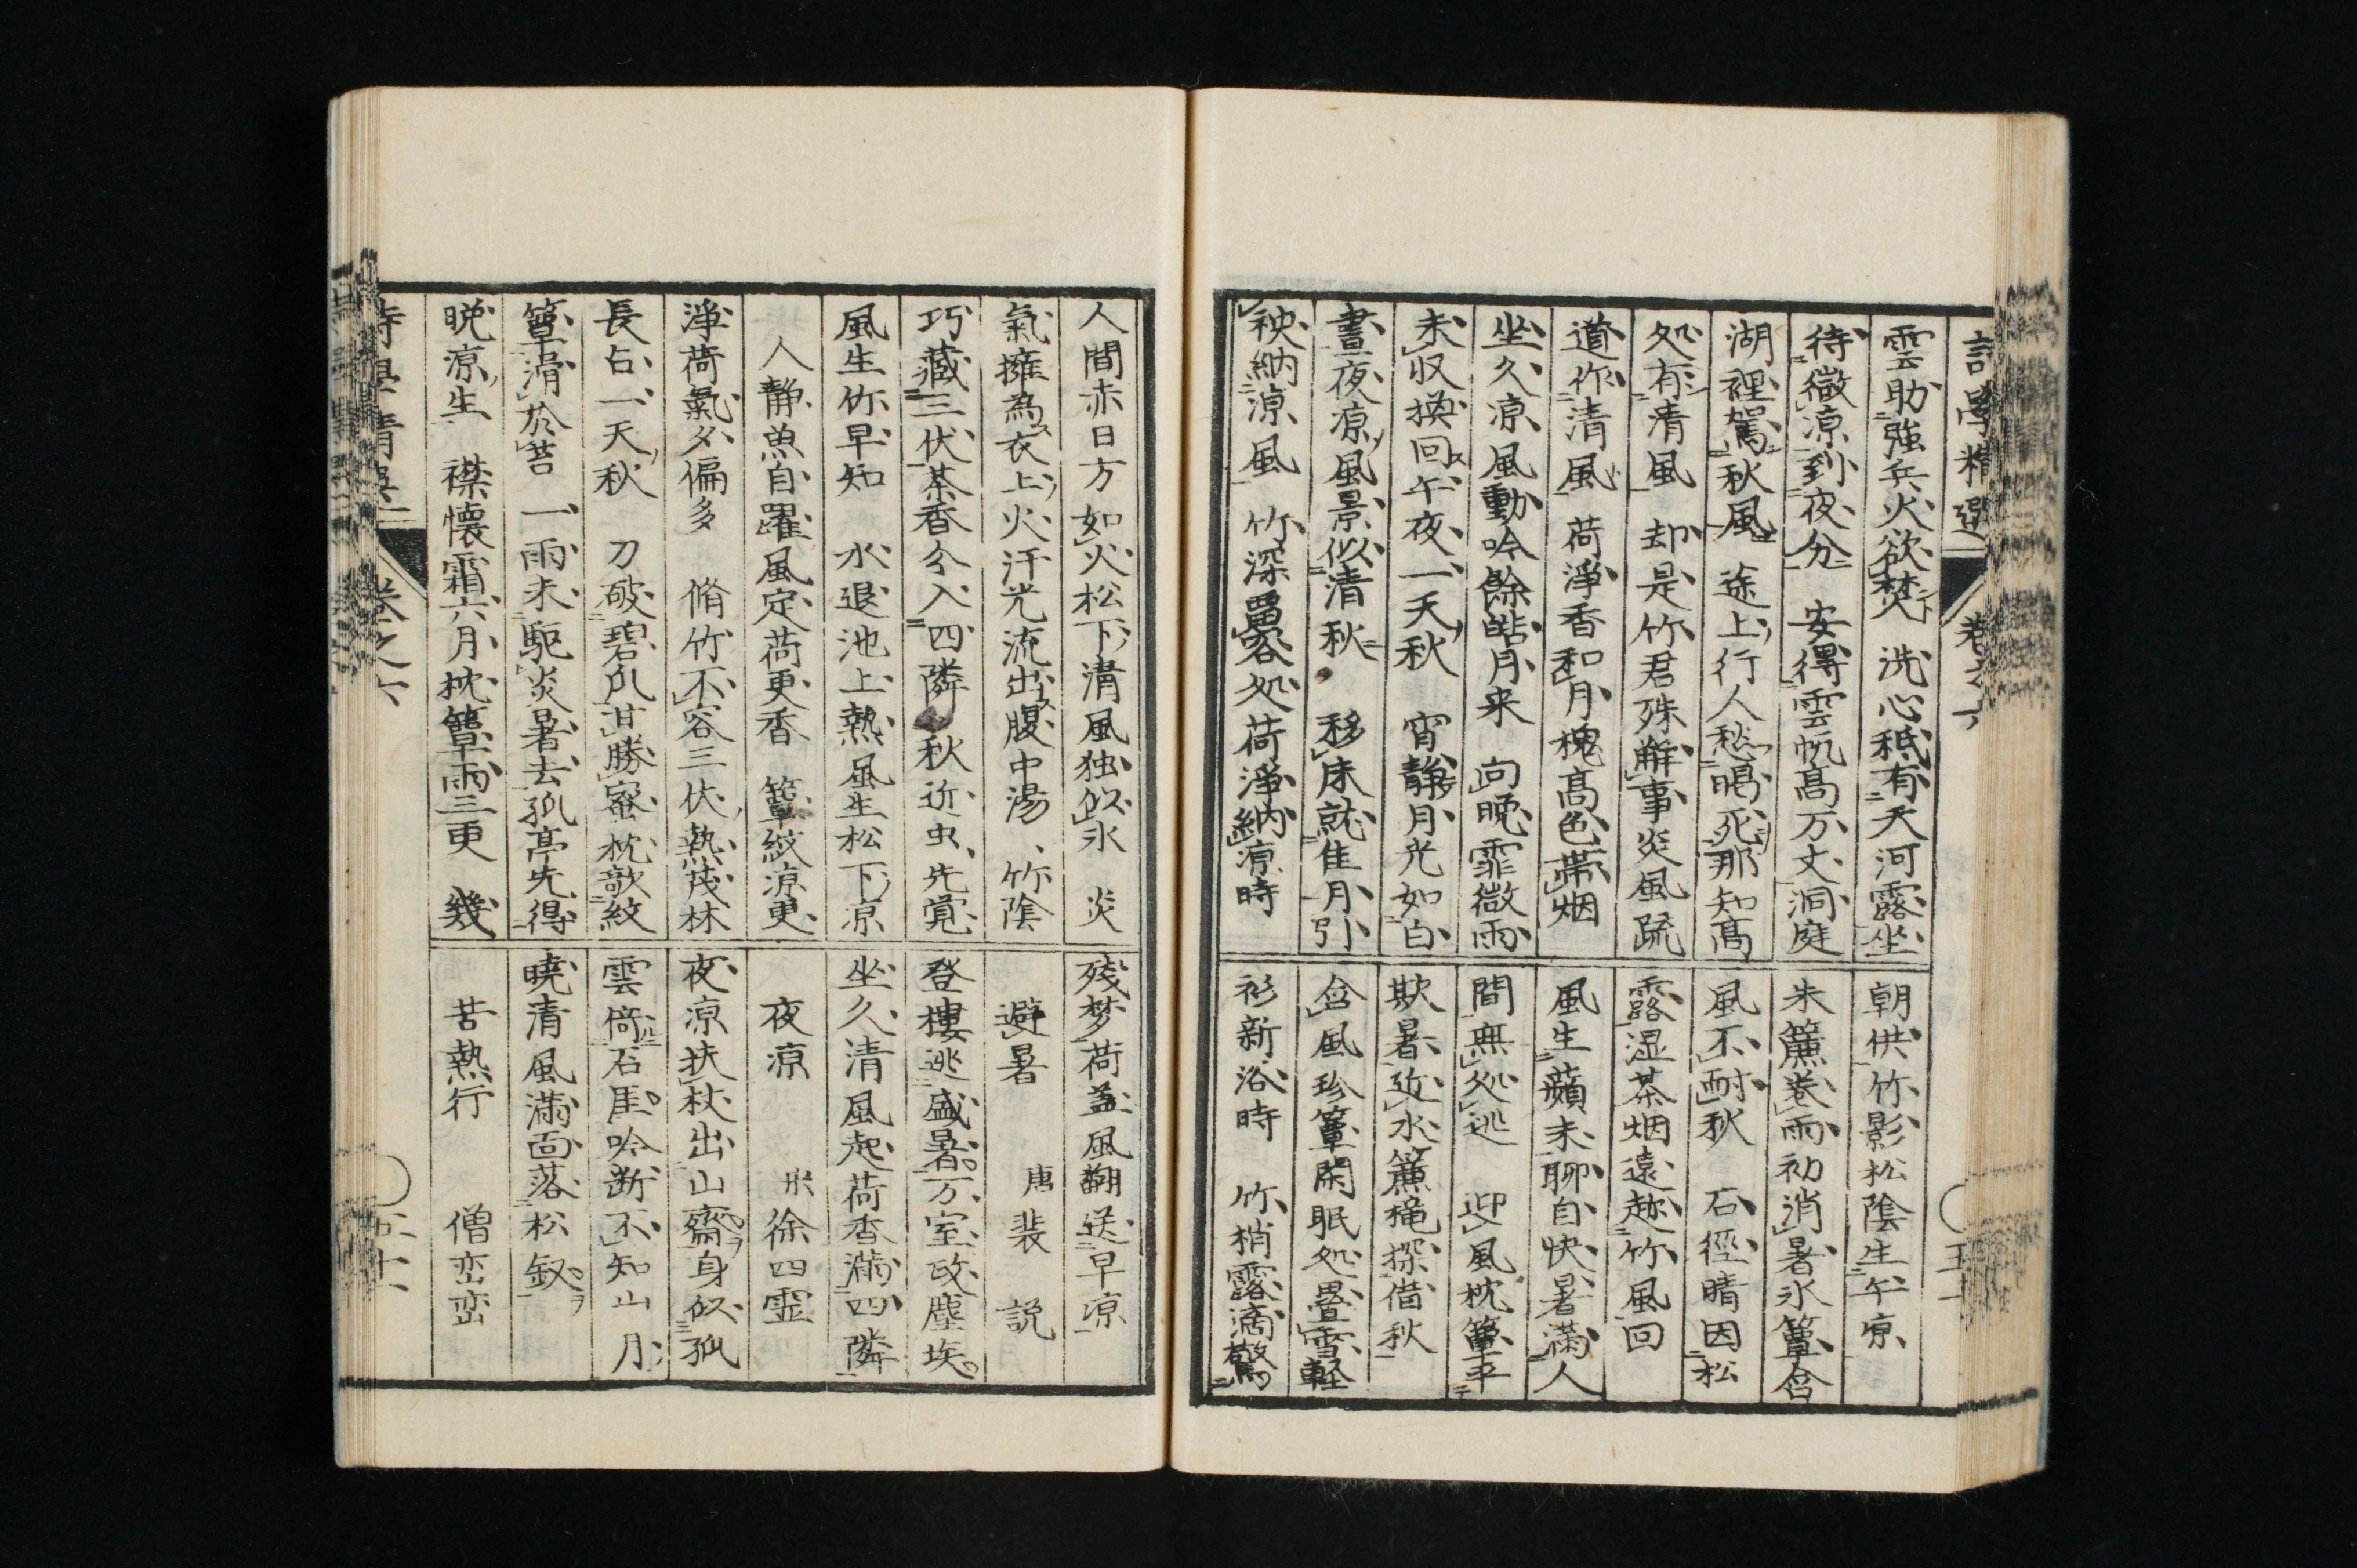 詩學精選 卷之六
雲助強兵火欲焚 洗心秪有天河露坐
待微涼到夜分 安得雲帆高万丈洞庭
湖裡駕秋風 途上行人愁暍死那知高
処有清風 却是竹君殊解事炎風疏
道作清風 荷淨香和月槐高色帶烟
坐久凉風動吟餘皓月来 向晚霏微雨
未収換回午夜一天秋 宵静月光如白
晝夜凉風景似清秋 移床就佳月引
袂納凉風 竹深畱客処荷淨納凉時
朝供竹影松陰生午凉
朱簾巻雨初消暑氷簟含
風不耐秋 石徑晴因松
露湿茶烟遠趂竹風回
風生蘋末聊自快暑满人
間無処逃 迎風枕簟平
欺暑近水簾櫳探借秋
含風珍簟閑眠処疊雪軽
衫新浴時 竹梢露滴驚
人間赤日方如火松下清風独似氷 炎
氣擁為衣上火汗光流出腹中湯 竹陰
巧藏三伏茶香分入四隣 秋近虫先覚
風生竹早知 水退池上熱風生松下凉
人静魚自躍風定荷更香 簟紋凉更
淨荷氣夕偏多 脩竹不容三伏熱茂林
長占一天秋 刀破碧瓜甘勝蜜枕欹紋
簟滑於苔 一雨未駆炎暑去孤亭先得
晩凉生 襟懷霜六月枕簟雨三更 幾
残梦荷盖風翻送早凉
避暑 唐裴 説
登樓逃盛暑万室政塵埃
坐久清風起荷香满四隣
夜凉 宋徐四霊
夜凉扶杖出山齋身似孤
雲倚石厓吟断不知山月
曉清風满面落松釵
苦熱行 僧峦峦
卷之六